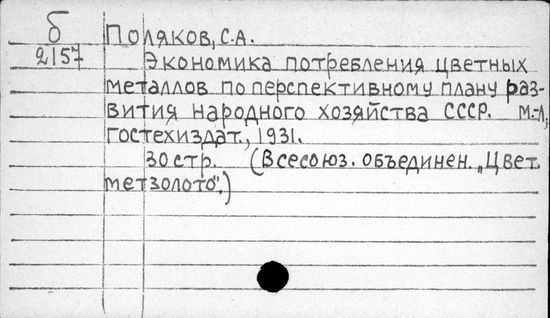 б Поляков, С.А.
2157 Экономика потребления цветных
металлов по перспективному плану раз-
вития народного хозяйства СССР. М.-Л,
Гостехиздат., 1931.
30 стр. (Всесоюз. объединен. „Цвет
метзолото".)